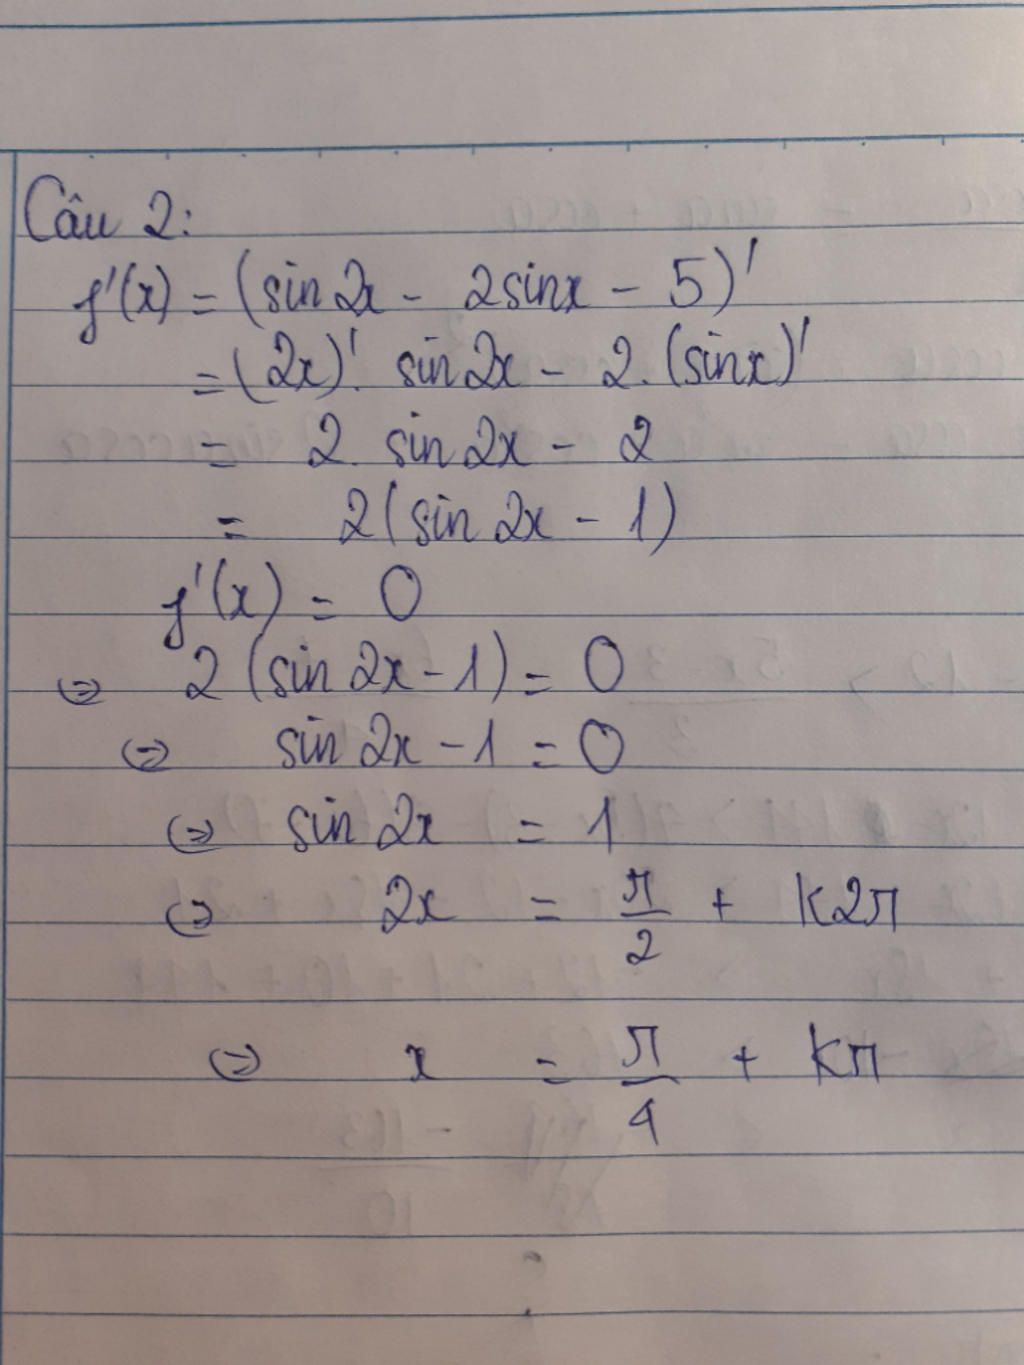 Câu 2:
f'(x) = (sin2x - 2sinx - 5)'
= (2x)'. sin2x - 2.(sinx)'
= 2. sin2x - 2
= 2(sin2x - 1)
f'(x) = 0
⇔ 2 (sin2x - 1) = 0
⇔ sin2x - 1 = 0
⇔ sin2x = 1
⇔ 2x = π/2 + k2π
⇔ x = π/4 + kπ